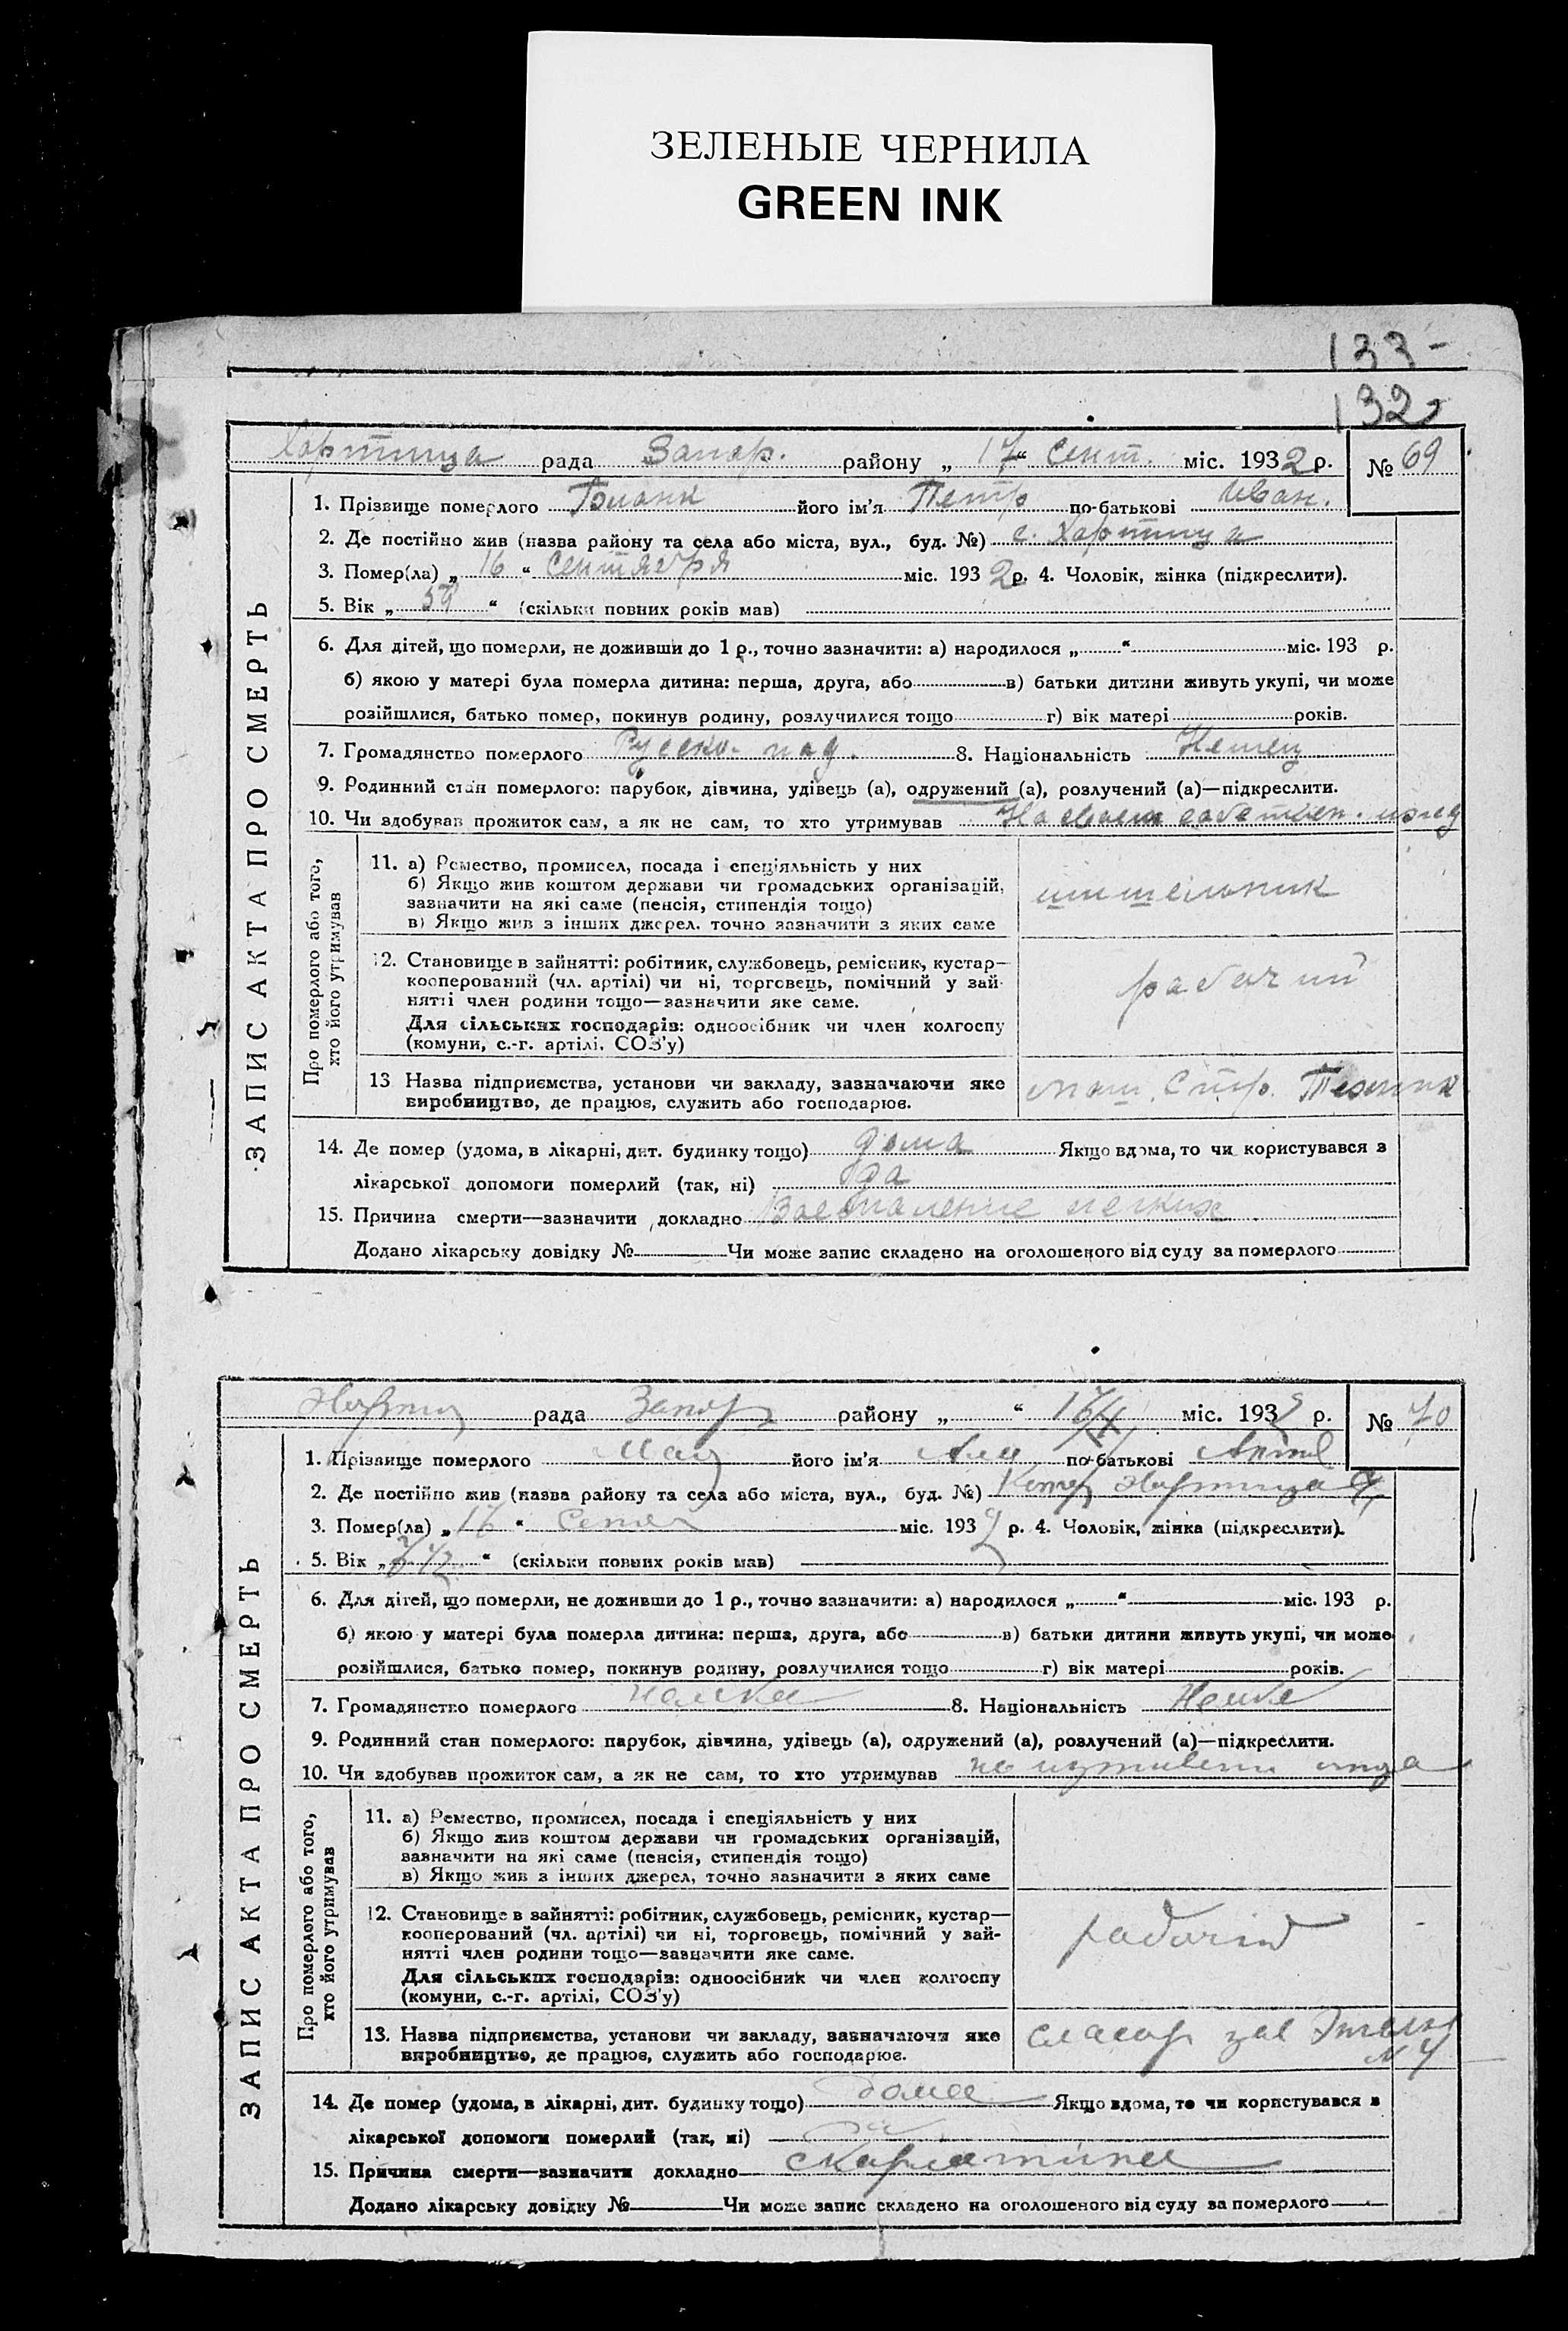 ЗЕЛЕНЫЕ ЧЕРНИЛА
GREEN INK
133-
132
Хортица рада Запор. району „ 17 “ Сент. міс. 1932 р. № 69
ЗАПИС АКТА ПРО СМЕРТЬ
1. Прізвище померлого Бланк його ім'я Петр по-батькові Иван.
2. Де постійно жив (назва району та села або міста, вул., буд. №) с. Хортица
3. Помер(ла) „ 16 “ Сентября міс. 1932 р. 4. Чоловік, жінка (підкреслити).
5. Вік „ 59 “ (скільки повних років мав)
6. Для дітей, що померли, не доживши до 1 р., точно зазначити: а) народилося „ “ міс. 193 р.
б) якою у матері була померла дитина: перша, друга, або в) батьки дитини живуть укупі, чи може
розійшлися, батько помер, покинув родину, розлучилися тощо г) вік матері років.
7. Громадянство померлого Русско-под. 8. Національність Немец
9. Родинний стан померлого: парубок, дівчина, удівець (а), одружений (а), розлучений (а)—підкреслити.
10. Чи здобував прожиток сам, а як не сам, то хто утримував На своем собствен.
Про померлого або того, хто його утримував
11. а) Ремество, промисел, посада і спеціяльність у них
б) Якщо жив коштом держави чи громадських організацій,
зазначити на які саме (пенсія, стипендія тощо)
в) Якщо жив з інших джерел, точно зазначити з яких саме
12. Становище в зайнятті: робітник, службовець, ремісник, кустар—
кооперований (чл. артілі) чи ні, торговець, помічний у зай-
нятті член родини тощо—зазначити яке саме.
Для сільських господарів: одноосібник чи член колгоспу
(комуни, с.-г. артілі, СОЗ'у)
рабочий
13 Назва підприємства, установи чи закладу, зазначаючи яке
виробництво, де працює, служить або господарює.
маш. Стр.
14. Де помер (удома, в лікарні, дит. будинку тощо) дома Якщо вдома, то чи користувався з
лікарської допомоги померлий (так, ні) да
15. Причина смерти—зазначити докладно Воспаление легких
Додано лікарську довідку № Чи може запис складено на оголошеного від суду за померлого
рада Запор району „ “ міс. 193 р. № 70
ЗАПИС АКТА ПРО СМЕРТЬ
1. Прізвище померлого його ім'я по-батькові
2. Де постійно жив (назва району та села або міста, вул., буд. №) Хортица
3. Помер(ла) „ 16 “ міс. 193 р. 4. Чоловік, жінка (підкреслити).
5. Вік „ “ (скільки повних років мав)
6. Для дітей, що померли, не доживши до 1 р., точно зазначити: а) народилося „ “ міс. 193 р.
б) якою у матері була померла дитина: перша, друга, або в) батьки дитини живуть укупі, чи може
розійшлися, батько помер, покинув родину, розлучилися тощо г) вік матері років.
7. Громадянство померлого немка 8. Національність Немка
9. Родинний стан померлого: парубок, дівчина, удівець (а), одружений (а), розлучений (а)—підкреслити.
10. Чи здобував прожиток сам, а як не сам, то хто утримував на иждивении отца
Про померлого або того, хто його утримував
11. а) Ремество, промисел, посада і спеціяльність у них
б) Якщо жив коштом держави чи громадських організацій,
зазначити на які саме (пенсія, стипендія тощо)
в) Якщо жив з інших джерел, точно зазначити з яких саме
12. Становище в зайнятті: робітник, службовець, ремісник, кустар—
кооперований (чл. артілі) чи ні, торговець, помічний у зай-
нятті член родини тощо—зазначити яке саме.
Для сільських господарів: одноосібник чи член колгоспу
(комуни, с.-г. артілі, СОЗ'у)
рабочий
13. Назва підприємства, установи чи закладу, зазначаючи яке
виробництво, де працює, служить або господарює.
слесарь зав Энгельс
№ 4
14. Де помер (удома, в лікарні, дит. будинку тощо) дома Якщо вдома, то чи користувався з
лікарської допомоги померлий (так, ні) да
15. Причина смерти—зазначити докладно Скарлатина
Додано лікарську довідку № Чи може запис складено на оголошеного від суду за померлого